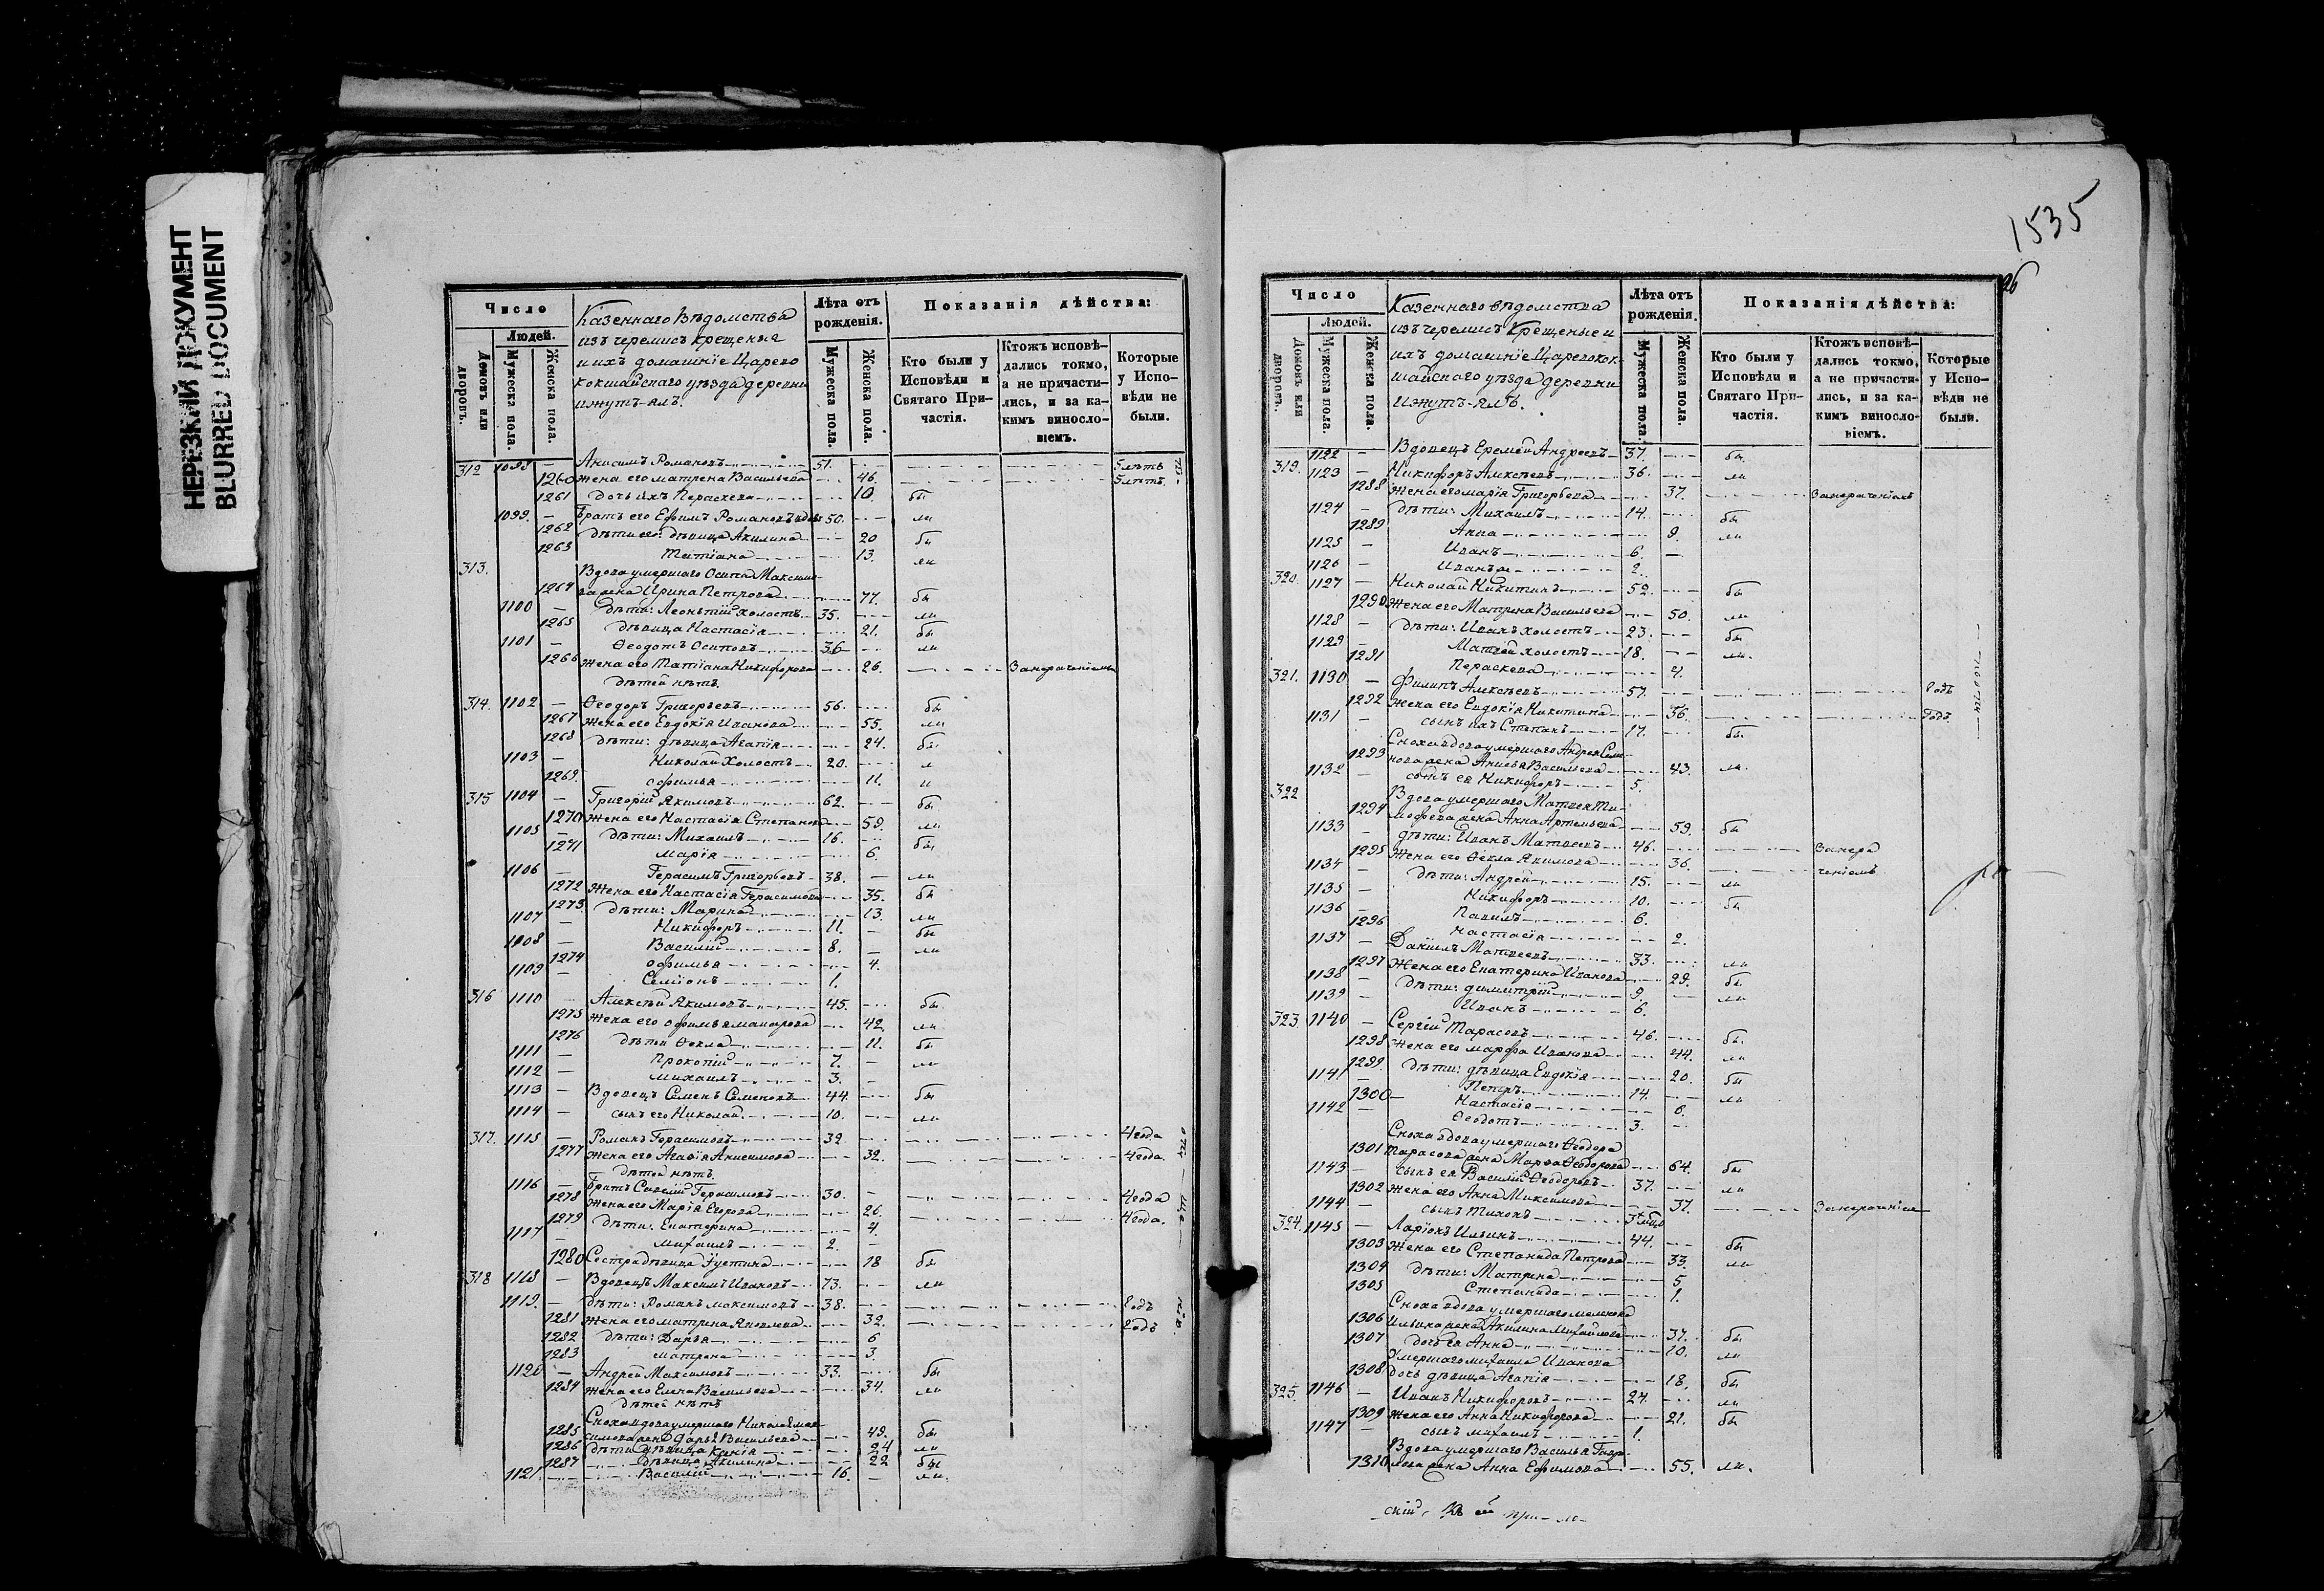 НЕРЕЗКИЙ ДОКУМЕНТ
BLURRED DOCUMENT
Число
Людей.
Домовъ или дворовъ.
Мужеска пола.
Женска пола.
Казеннаго вѣдомства
изъ черемисъ крещеные
и ихъ домашніе Царево
кокшайскаго уѣзда деревни
Ижутъ-ялъ.
Лѣта отъ рожденія.
Мужеска пола.
Женска пола.
Показанія дѣйства:
Кто были у Исповѣди и Святаго Причастія.
Ктожъ исповѣдались токмо, а не причастились, и за какимъ винословіемъ.
Которые у Исповѣди не были.
312 1098 — Анисимъ Романовъ 51. 5 лѣтъ
1260 жена его матрена Васильева 46. 5 лѣтъ
1261 дочь ихъ Параскева 10. бы
1099. — Братъ его Ефимъ Романовъ вдовъ 50. ли
1262 дѣти его: дѣвица Акилина 20 бы
1263 Татіана 13. ли
313. Вдова умершаго Осипа Максимо-
1264 ва жена Ирина Петрова 77. бы
1100 — дѣти: Леонтій холостъ 35. ли
1265 дѣвица Настасія 21. бы
1101 — Ѳеодотъ Осиповъ 36 ли
1266 жена его Татіана Никифорова 26. Занераченіемъ
дѣтей нѣтъ.
314. 1102 — Ѳеодоръ Григорьевъ 56. бы
1267 жена его Евдокія Иванова 55. ли
1268 дѣти: дѣвица Агапія 24. бы
1103 — Николай Холостъ 20. л
1269. офимья 11. и
315 1104 — Григорій Якимовъ 62. бы
1270 жена его Настасія Степанова 59. ли
1105 — дѣти: Михаилъ 16. бы
1271 Марія 6.
1106 — Герасимъ Григорьевъ 38. ли
1272 Жена его Настасія Герасимова 35. бы
1273. дѣти: Марина 13. ли
1107 — Никифоръ 11. бы
1108 — Василій 8. ли
1274 офимья 4.
1109 — Семіонъ 1.
316 1110 Алексѣй Якимовъ 45. бы
1275 Жена его офимья макарова 42. ли
1276 дѣти Ѳекла 11. бы
1111 — Прокопій 7. ли
1112 — михаилъ 3.
1113 — Вдовецъ Семенъ Семеновъ 44. бы
1114 — сынъ его Николай 10. ли
317. 1115 — Романъ Герасимовъ 32. 4 года
1277 жена его Агаѳія Анисимова 32. 4 года.
дѣтей нѣтъ.
1116 — Братъ Савелій Герасимовъ 30. 4 года
1278 Жена его Марія Егорова 26. 4 года.
1279 дѣти: Екатерина 4.
1117 — михаилъ 2.
1280 Сестра дѣвица Устина 18 бы
318 1118 — Вдовецъ Максимъ Ивановъ 73. ли
1119. — дѣти: Романъ максимовъ 38. Годъ
1281 жена его матрена Яковлева 32. Годъ
1282 дѣти: Дарья 6
1283 матрена 3.
1120 — Андрей Максимовъ 33. бы
1284 жена его Елена Васильева 34. ли
дѣтей нѣтъ
Сноха вдова умершаго Николая мак-
1285 симова жена Дарья Васильева 49. бы
1286 дѣти дѣвица 24 ли
1287 дѣвица Акилина 22 бы
1121. Василій 16. ли.
1535
26
Число
Людей.
Домовъ или дворовъ.
Мужеска пола.
Женска пола.
Казеннаго вѣдомства
изъ черемисъ Крещеные и
ихъ домашніе Царевокок-
шайскаго уѣзда деревни
Ижутъ-ялъ.
Лѣта отъ рожденія.
Мужеска пола.
Женска пола.
Показанія дѣйства:
Кто были у Исповѣди и Святаго Причастія.
Ктожъ исповѣдались токмо, а не причастились, и за какимъ винословіемъ.
Которые у Исповѣди не были.
1122 — Вдовецъ Еремей Андреевъ 37. бы
319. 1123 — Никифоръ Алексѣевъ 36. ли
1288 Жена его марія Григорьева 37. Занераченіемъ
1124 — дѣти: Михаилъ 14. бы
1289 Анна 9. ли
1125 — Иванъ 6.
1126 — Иванъ 2.
320. 1127 — Николай Никитинъ 52. бы
1290 Жена его Матрена Васильева 50. ли
1128 — дѣти: Иванъ холостъ 23. бы
1129 — Матвѣй холостъ 18. ли.
1291 Параскева 4.
321. 1130 — Филипъ Алексѣевъ 57. Годъ
1292 Жена его Евдокія Никитина 56. Годъ
1131 — сынъ ихъ Степанъ 17. бы
Сноха вдова умершаго Андрея Семе-
1293 нова жена Анисья Васильева 43. ли.
1132 — сынъ ея Никифоръ 5.
322 Вдова умершаго Матвея Ти-
1294 мофеева жена Анна Артемьева 59. бы
1133 — дѣти: Иванъ Матвеевъ 46. Занера
1295 Жена его Ѳекла Якимова 36. ченіемъ
1134 — дѣти: Андрей 15. ли
1135 — Никифоръ 10. бы
1136 — Павилъ 6.
1296 Настасія 2.
1137 — Даніилъ Матвеевъ 33. ли
1297 Жена его Екатерина Иванова 29. бы
1138 — дѣти: димитрій 9. ли
1139 — Иванъ 6.
323. 1140 — Сергій Тарасовъ 46. бы
1298 Жена его марфа Иванова 44. ли
1299. дѣти: дѣвица Евдокія 20. бы
1141 — Петръ 14. ли
1300 — Настасія 6.
1142 — Ѳеодотъ 3.
Сноха вдова умершаго Ѳеодора
1301 Тарасова жена Марѳа Ѳеодорова 64. бы
1143 — сынъ ея Василій Ѳеодоровъ 37. ли
1302 Жена его Анна Максимова 37. Занераченіем
1144 — сынъ Тихонъ
324. 1145 — Ларіонъ Ильинъ 44. бы
1303 Жена его Степанида Петрова 33. ли
1304 дѣти: Матрена 5
1305 Степанида 1.
Сноха вдова умершаго
1306 Ильина жена Акилина Михайлова 37. бы
1307 дочь ея Анна 10. ли
Умершаго михаила Иванова
1308 дочь дѣвица Агапія 18, бы
325. 1146 — Иванъ Никифоровъ 24. ли
1309 Жена его Анна Никифорова 21. бы
1147 — сынъ михаилъ 1.
Вдова умершаго Василья Гаври-
1310 лова жена Анна Ефимова 55. ли.